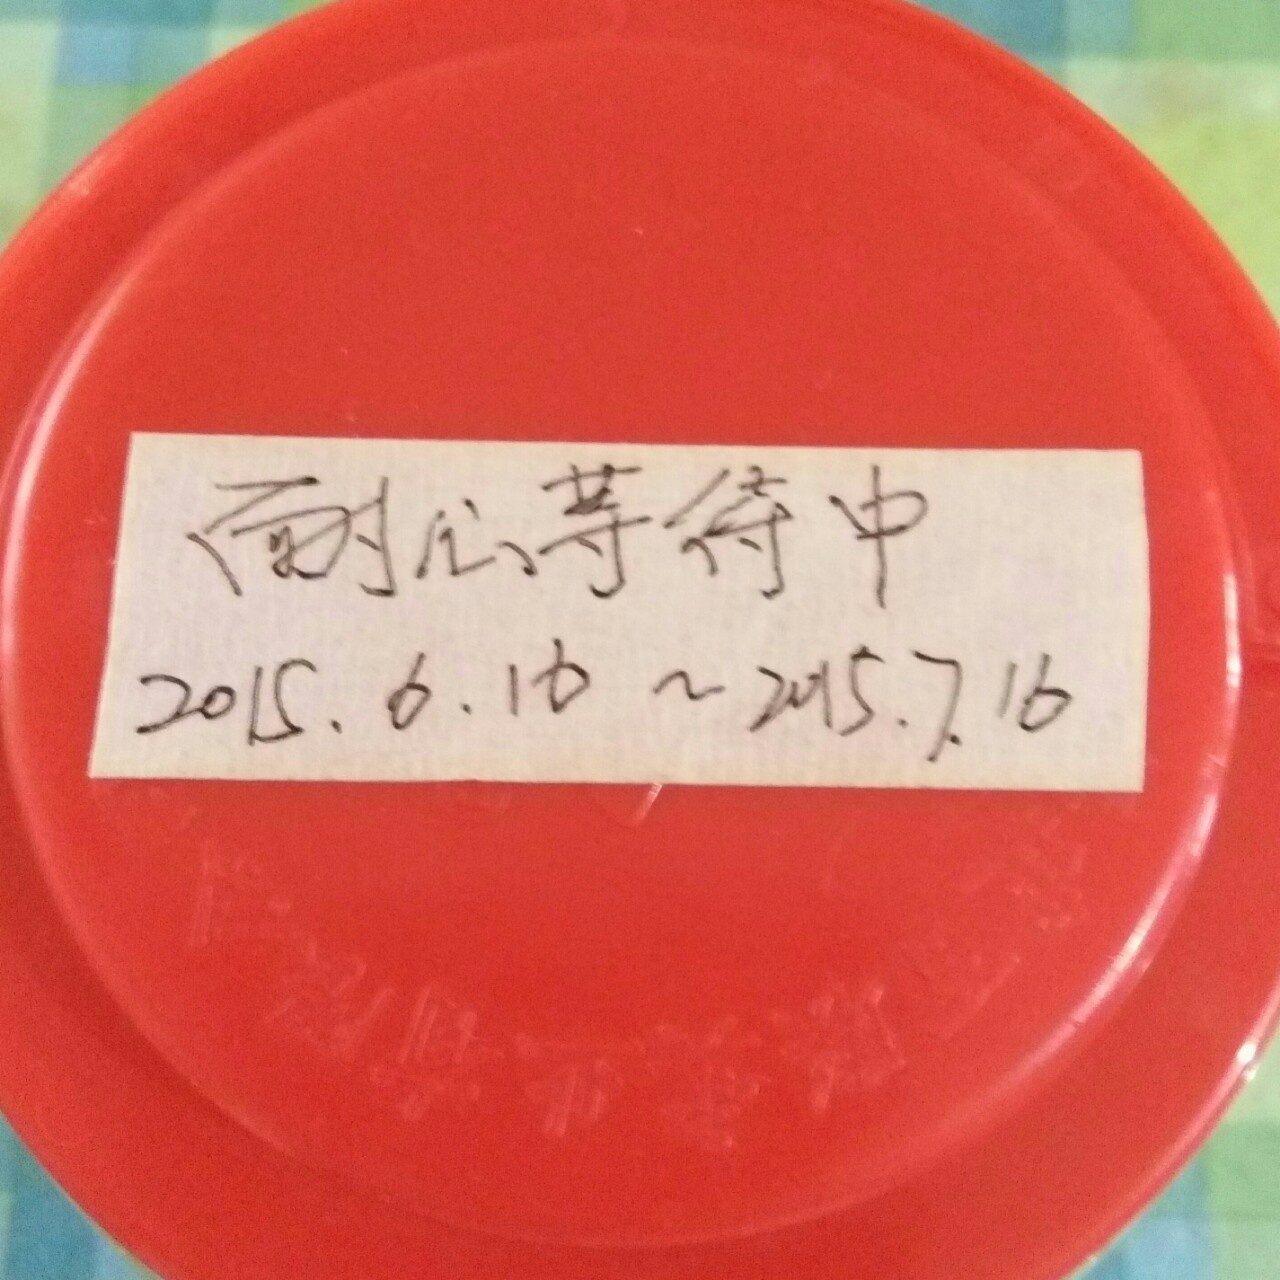 耐心等待中
2015.6.16～2015.7.16